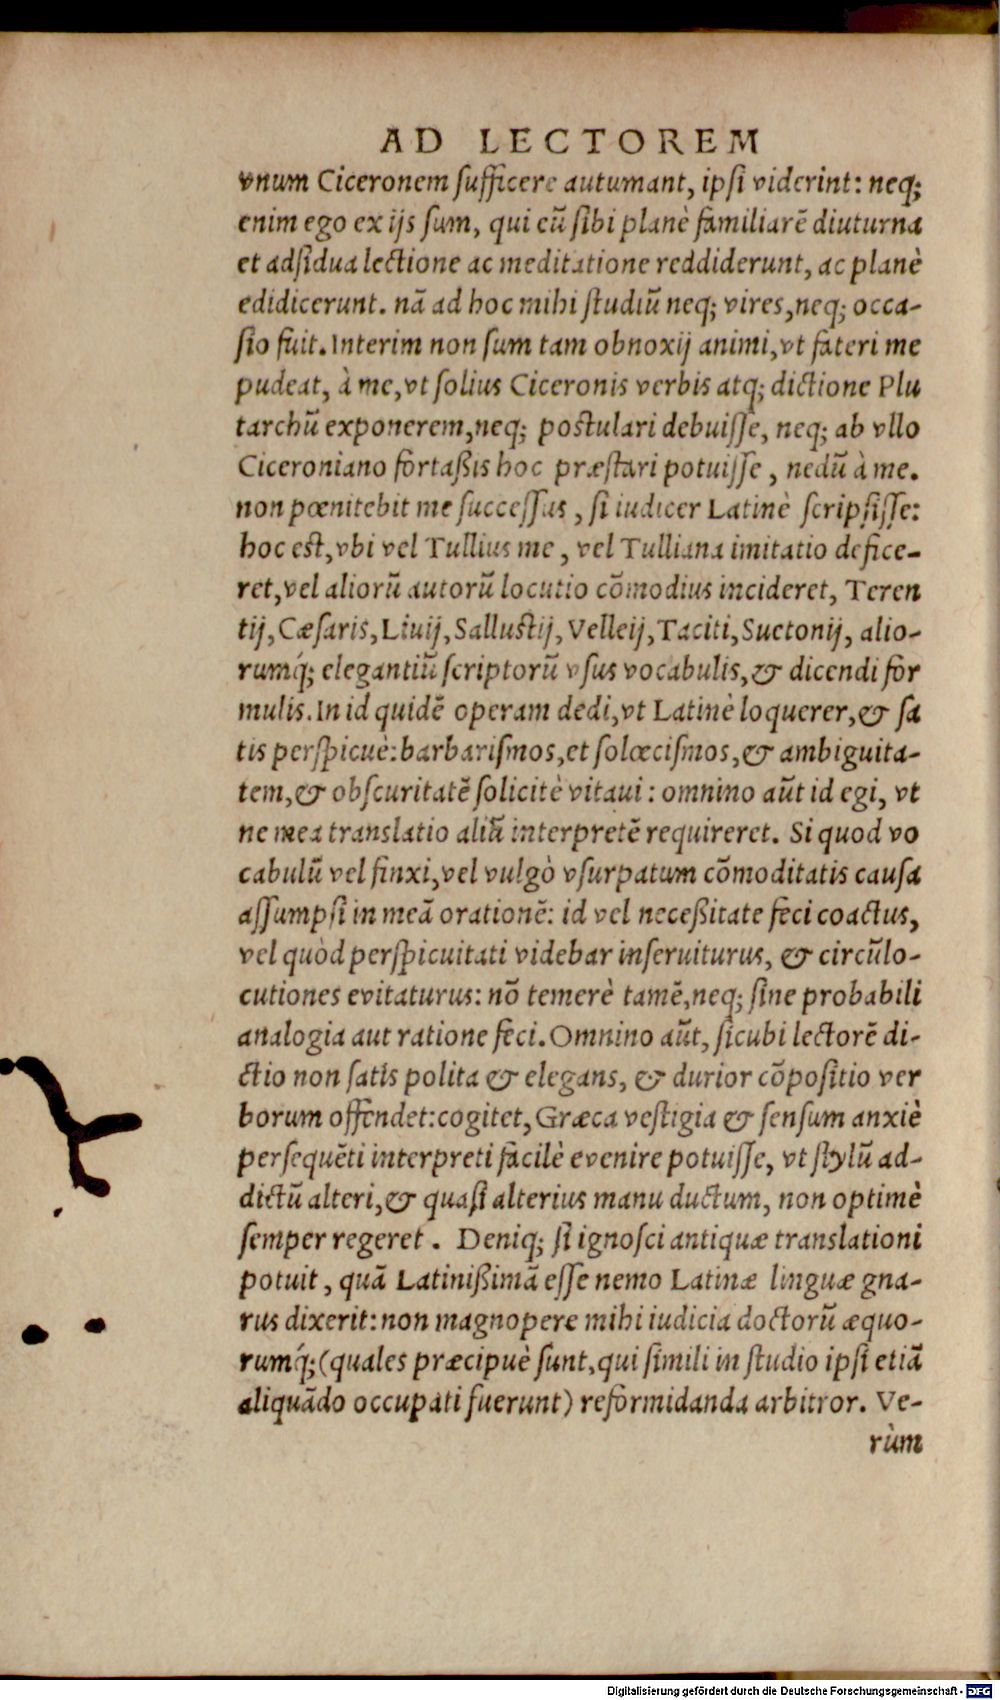 AD LECTOREM
vnum Ciceronem ſufficere autumant, ipſi viderint: neq;
enim ego ex ijs ſum, qui eũ ſibi planè familiarẽ diuturna
et adſidua lectione ac meditatione reddiderunt, ac planè
edidicerunt. nã ad hoc mihi ſtudiũ neq; vires, neq; occa-
ſio fuit. Interim non ſum tam obnoxij animi, vt fateri me
pudeat, à me, vt ſolius Ciceronis verbis atq; dictione Plu
tarchũ exponerem, neq; poſtulari debuiſſe, neq; ab vllo
Ciceroniano fortaßis hoc præſtari potuiſſe, nedũ à me.
non pœnitebit me ſucceſſus, ſi iudicer Latinè ſcripſiſſe:
hoc eſt, vbi vel Tullius me, vel Tulliana imitatio defice-
ret, vel aliorũ autorũ locutio cõmodius incideret, Teren
tij, Cæſaris, Liuij, Salluſtij, Velleij, Taciti, Suetonij, alio-
rumq́; elegantiũ ſcriptorũ vſus vocabulis, & dicendi for
mulis. In id quidẽ operam dedi, vt Latinè loquerer, & ſa
tis perſpicuè: barbariſmos, et ſolœciſmos, & ambiguita-
tem, & obſcuritatẽ ſolicitè vitaui: omnino aũt id egi, vt
ne mea translatio aliũ interpretẽ requireret. Si quod vo
cabulũ vel finxi, vel vulgò vſurpatum cõmoditatis cauſa
aſſumpſi in meã orationẽ: id vel neceßitate feci coactus,
vel quòd perſpicuitati videbar inſeruiturus, & circũlo-
cutiones evitaturus: nõ temerè tamẽ, neq; ſine probabili
analogia aut ratione feci. Omnino aũt, ſicubi lectorẽ di-
ctio non ſatis polita & elegans, & durior cõpoſitio ver
borum offendet: cogitet, Græca veſtigia & ſenſum anxiè
perſequẽti interpreti facilè evenire potuiſſe, vt ſtylũ ad-
dictũ alteri, & quaſi alterius manu ductum, non optimè
ſemper regeret. Deniq; ſi ignoſci antiquæ translationi
potuit, quã Latinißimã eſſe nemo Latinæ linguæ gna-
rus dixerit: non magnopere mihi iudicia doctorũ æquo-
rumq́; (quales præcipuè ſunt, qui ſimili in ſtudio ipſi etiã
aliquãdo occupati fuerunt) reformidanda arbitror. Ve-
rùm
Digitalisierung gefördert durch die Deutsche Forschungsgemeinschaft - DFG